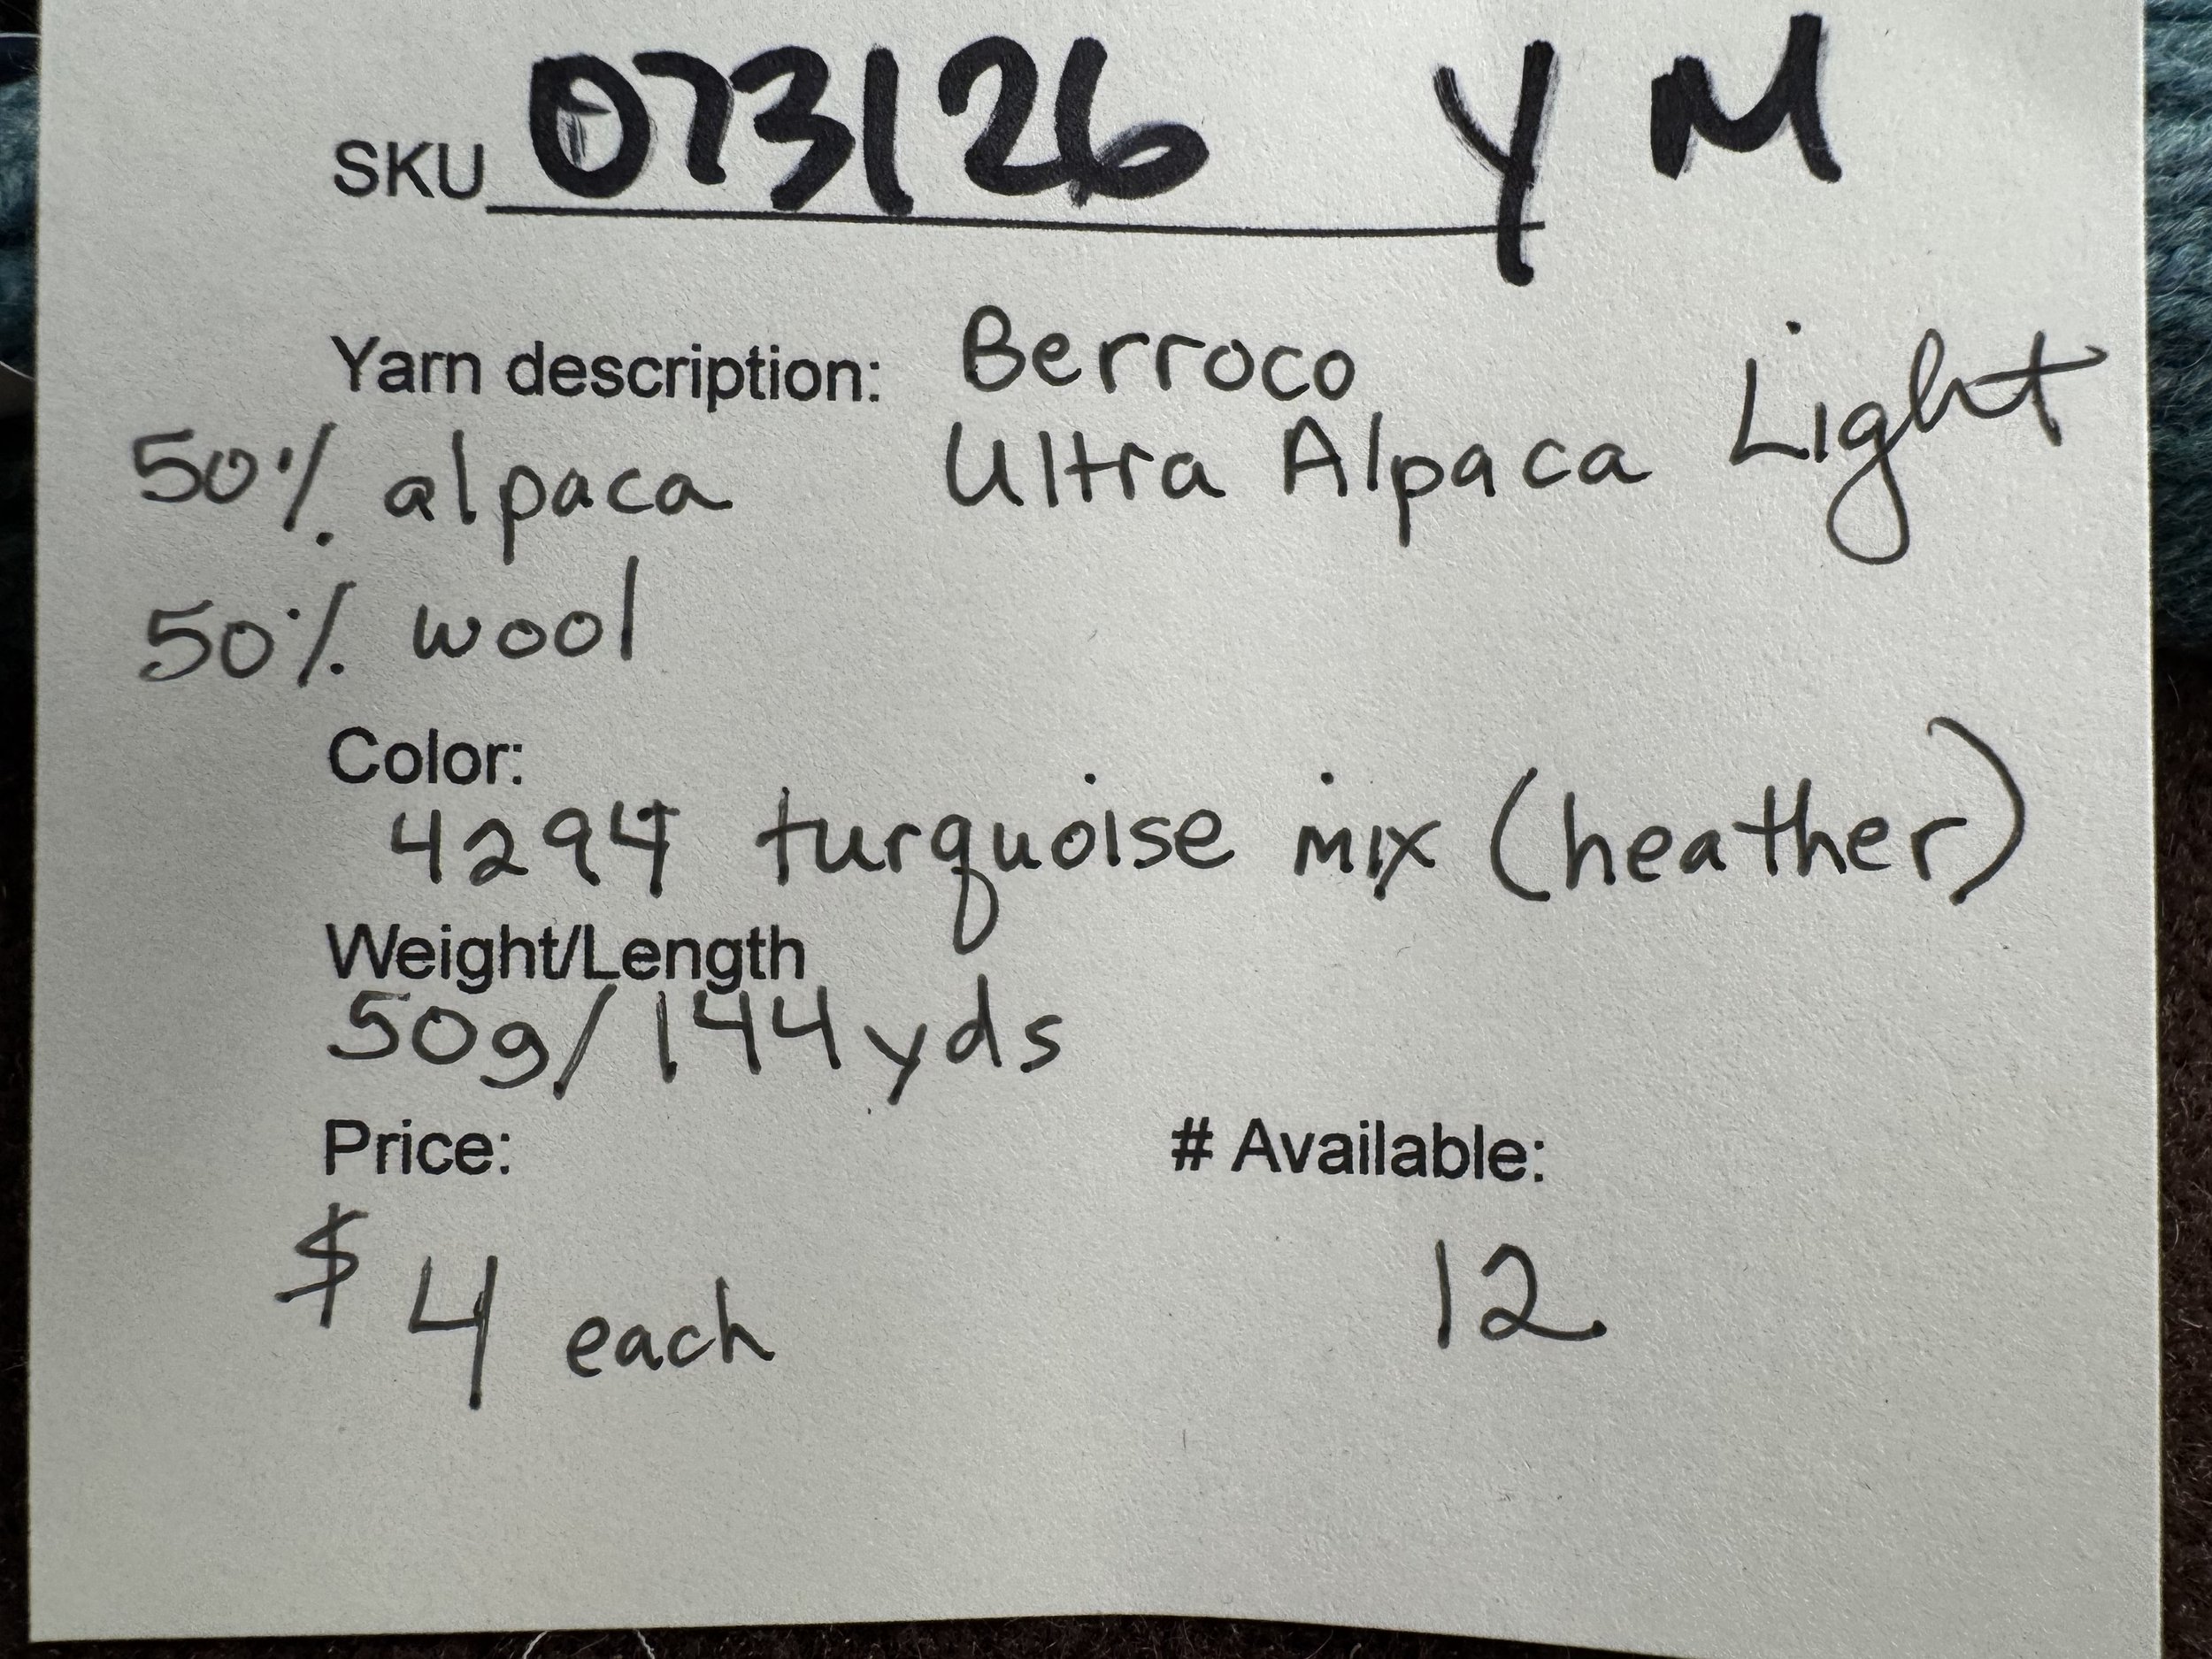 SKU 073126 YM
Yarn description: Berroco
50% alpaca Ultra Alpaca Light
50% wool
Color:
4294 turquoise mix (heather)
Weight/Length
50g/144yds
Price: # Available:
$4 each 12